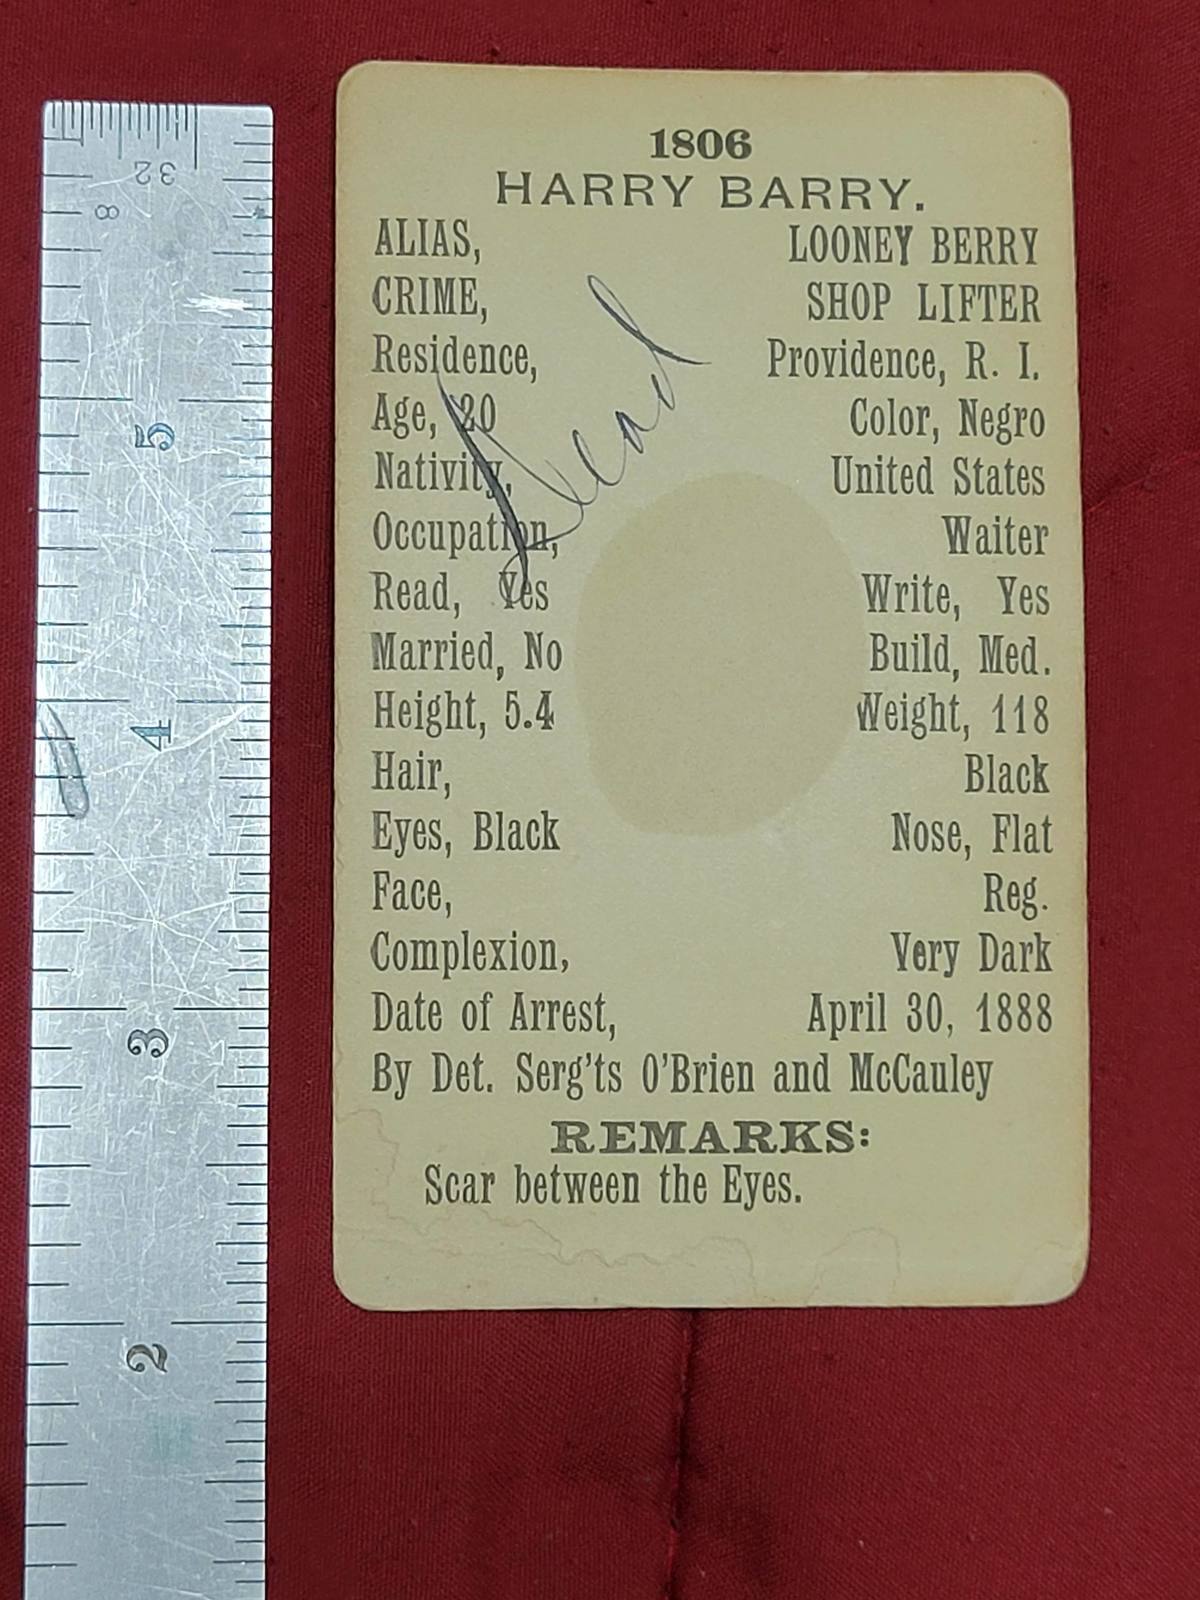 1806
HARRY BARRY.
ALIAS, LOONEY BERRY
CRIME, SHOP LIFTER
Residence, Providence, R. I.
Age, 20 Color, Negro
Nativity, United States
Occupation, Waiter
Read, Yes Write, Yes
Married, No Build, Med.
Height, 5.4 Weight, 118
Hair, Black
Eyes, Black Nose, Flat
Face, Reg.
Complexion, Very Dark
Date of Arrest, April 30, 1888
By Det. Serg'ts O'Brien and McCauley
REMARKS:
Scar between the Eyes.
Dead
32
8
5
4
3
2